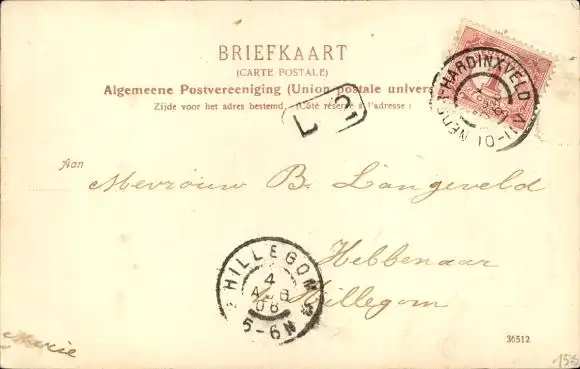 BRIEFKAART
(CARTE POSTALE)
Algemeene Postvereeniging (Union postale univers
Zijde voor het adres bestemd. (Côté réservé à l'adresse)
Aan
Mevrouw B. Langeveld
Hebbenaar
Hillegom
HILLEGOM
4
AUG
08
5-6N
HARDINXVELD
Marie
36512